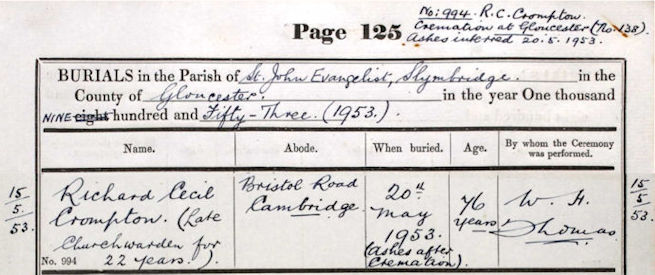 Page 125
No: 994. R. C. Crompton.
Cremation at Gloucester (No. 138).
Ashes interred 20. 5. 1953.
BURIALS in the Parish of St. John Evangelist, Slymbridge. in the
County of Gloucester. in the year One thousand
NINE eight hundred and Fifty-Three. (1953.)
Name. Abode. When buried. Age. By whom the Ceremony was performed.
15/5/53.
Richard Cecil
Crompton. (Late
Churchwarden for
No. 994 22 years.).
Bristol Road
Cambridge
20th
May
1953.
(Ashes after
Cremation).
76
years
W. H.
Thomas
15/5/53.